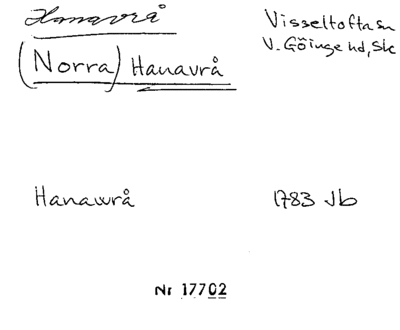 Hanavrå
Visseltofta sn
(Norra) Hanavrå
V. Göinge hd, Sk
Hanawrå
1783 Jb
Nr 17702